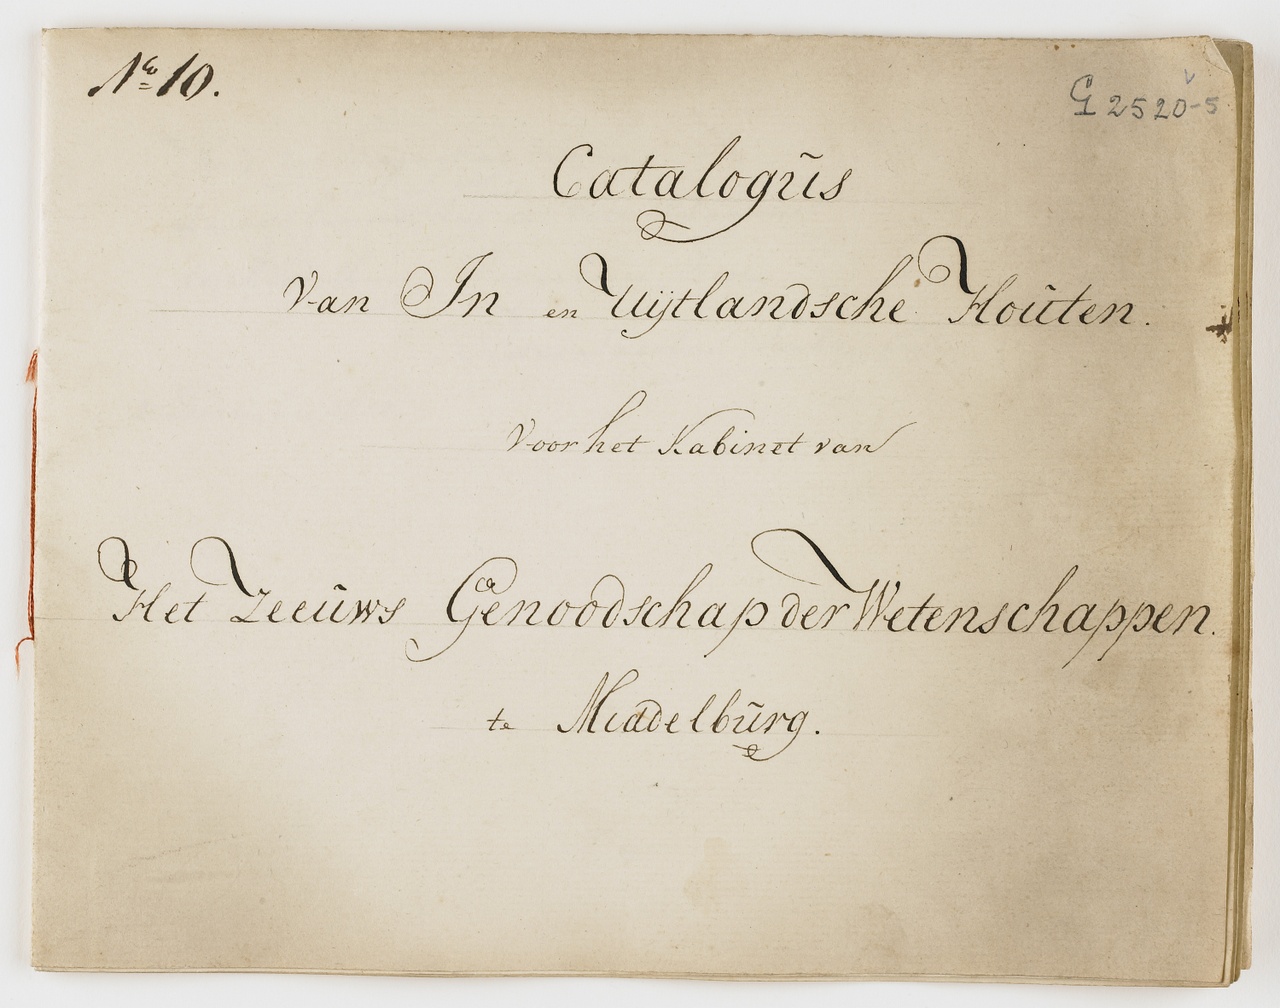 No 10.
G 2520-5
Catalogũs
van In en Uijtlandsche Hoũten.
Voor het Kabinet van
Het Zeeũws Genoodschap der Wetenschappen.
te Middelbũrg.